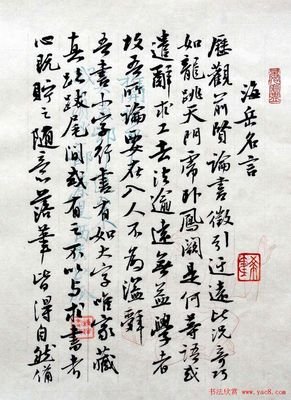 海岳名言
歷觀前賢論書徵引迂遠比況奇巧
如龍跳天門虎卧鳳闕是何等語或
遣辭求工去法逾遠無益學者
故吾所論要在入人不為溢辭
吾書小字行書有如大字唯家藏
真跡跋尾間或有之不以与求書者
心既貯之随意落筆皆得自然備
书法欣赏
www.yac8.com